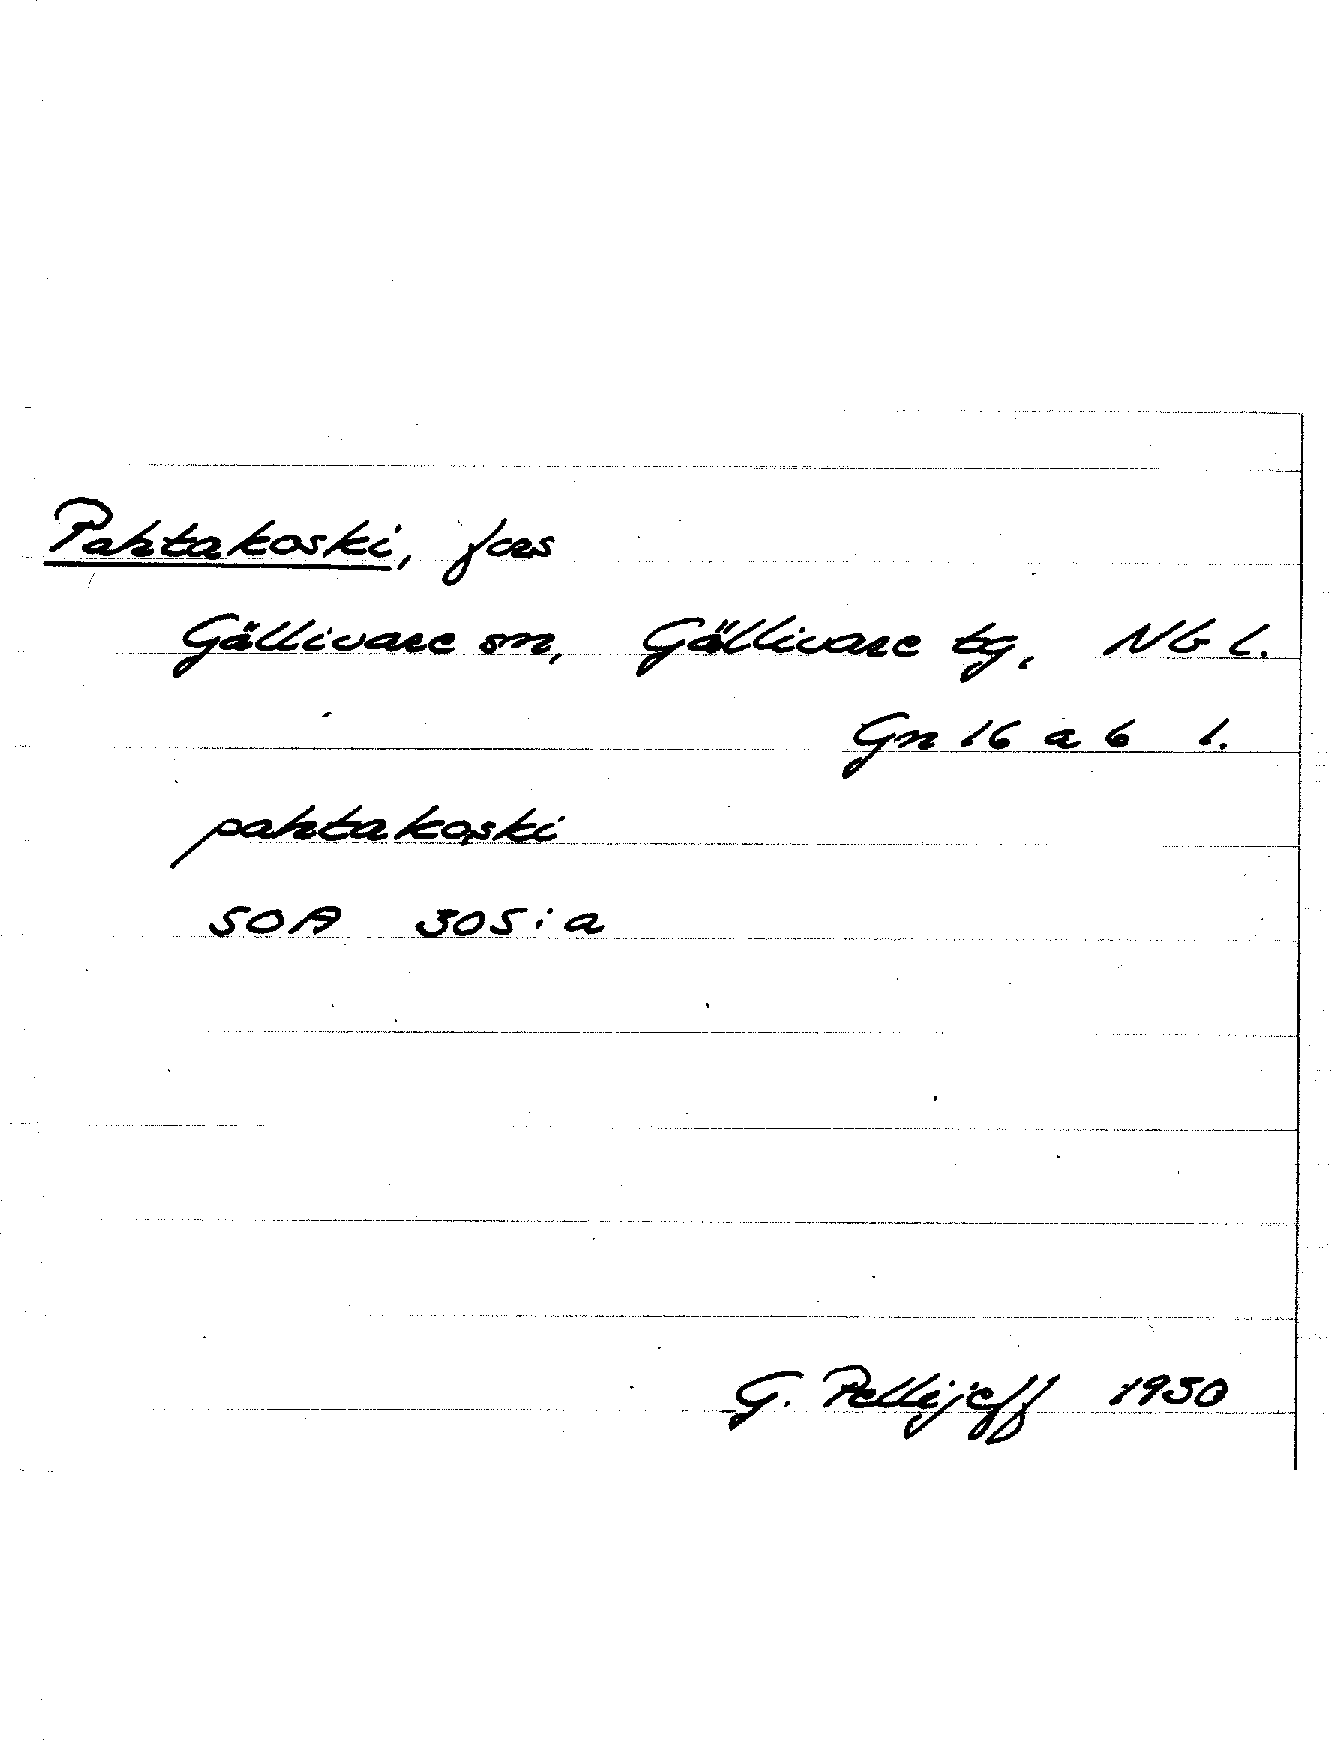 Pahtakoski, fors
Gällivare sn, Gällivare tg, Nb l.
Gn 16 a b 1.
pahtakoski
SOA 305:a
G. Pellijeff 1950